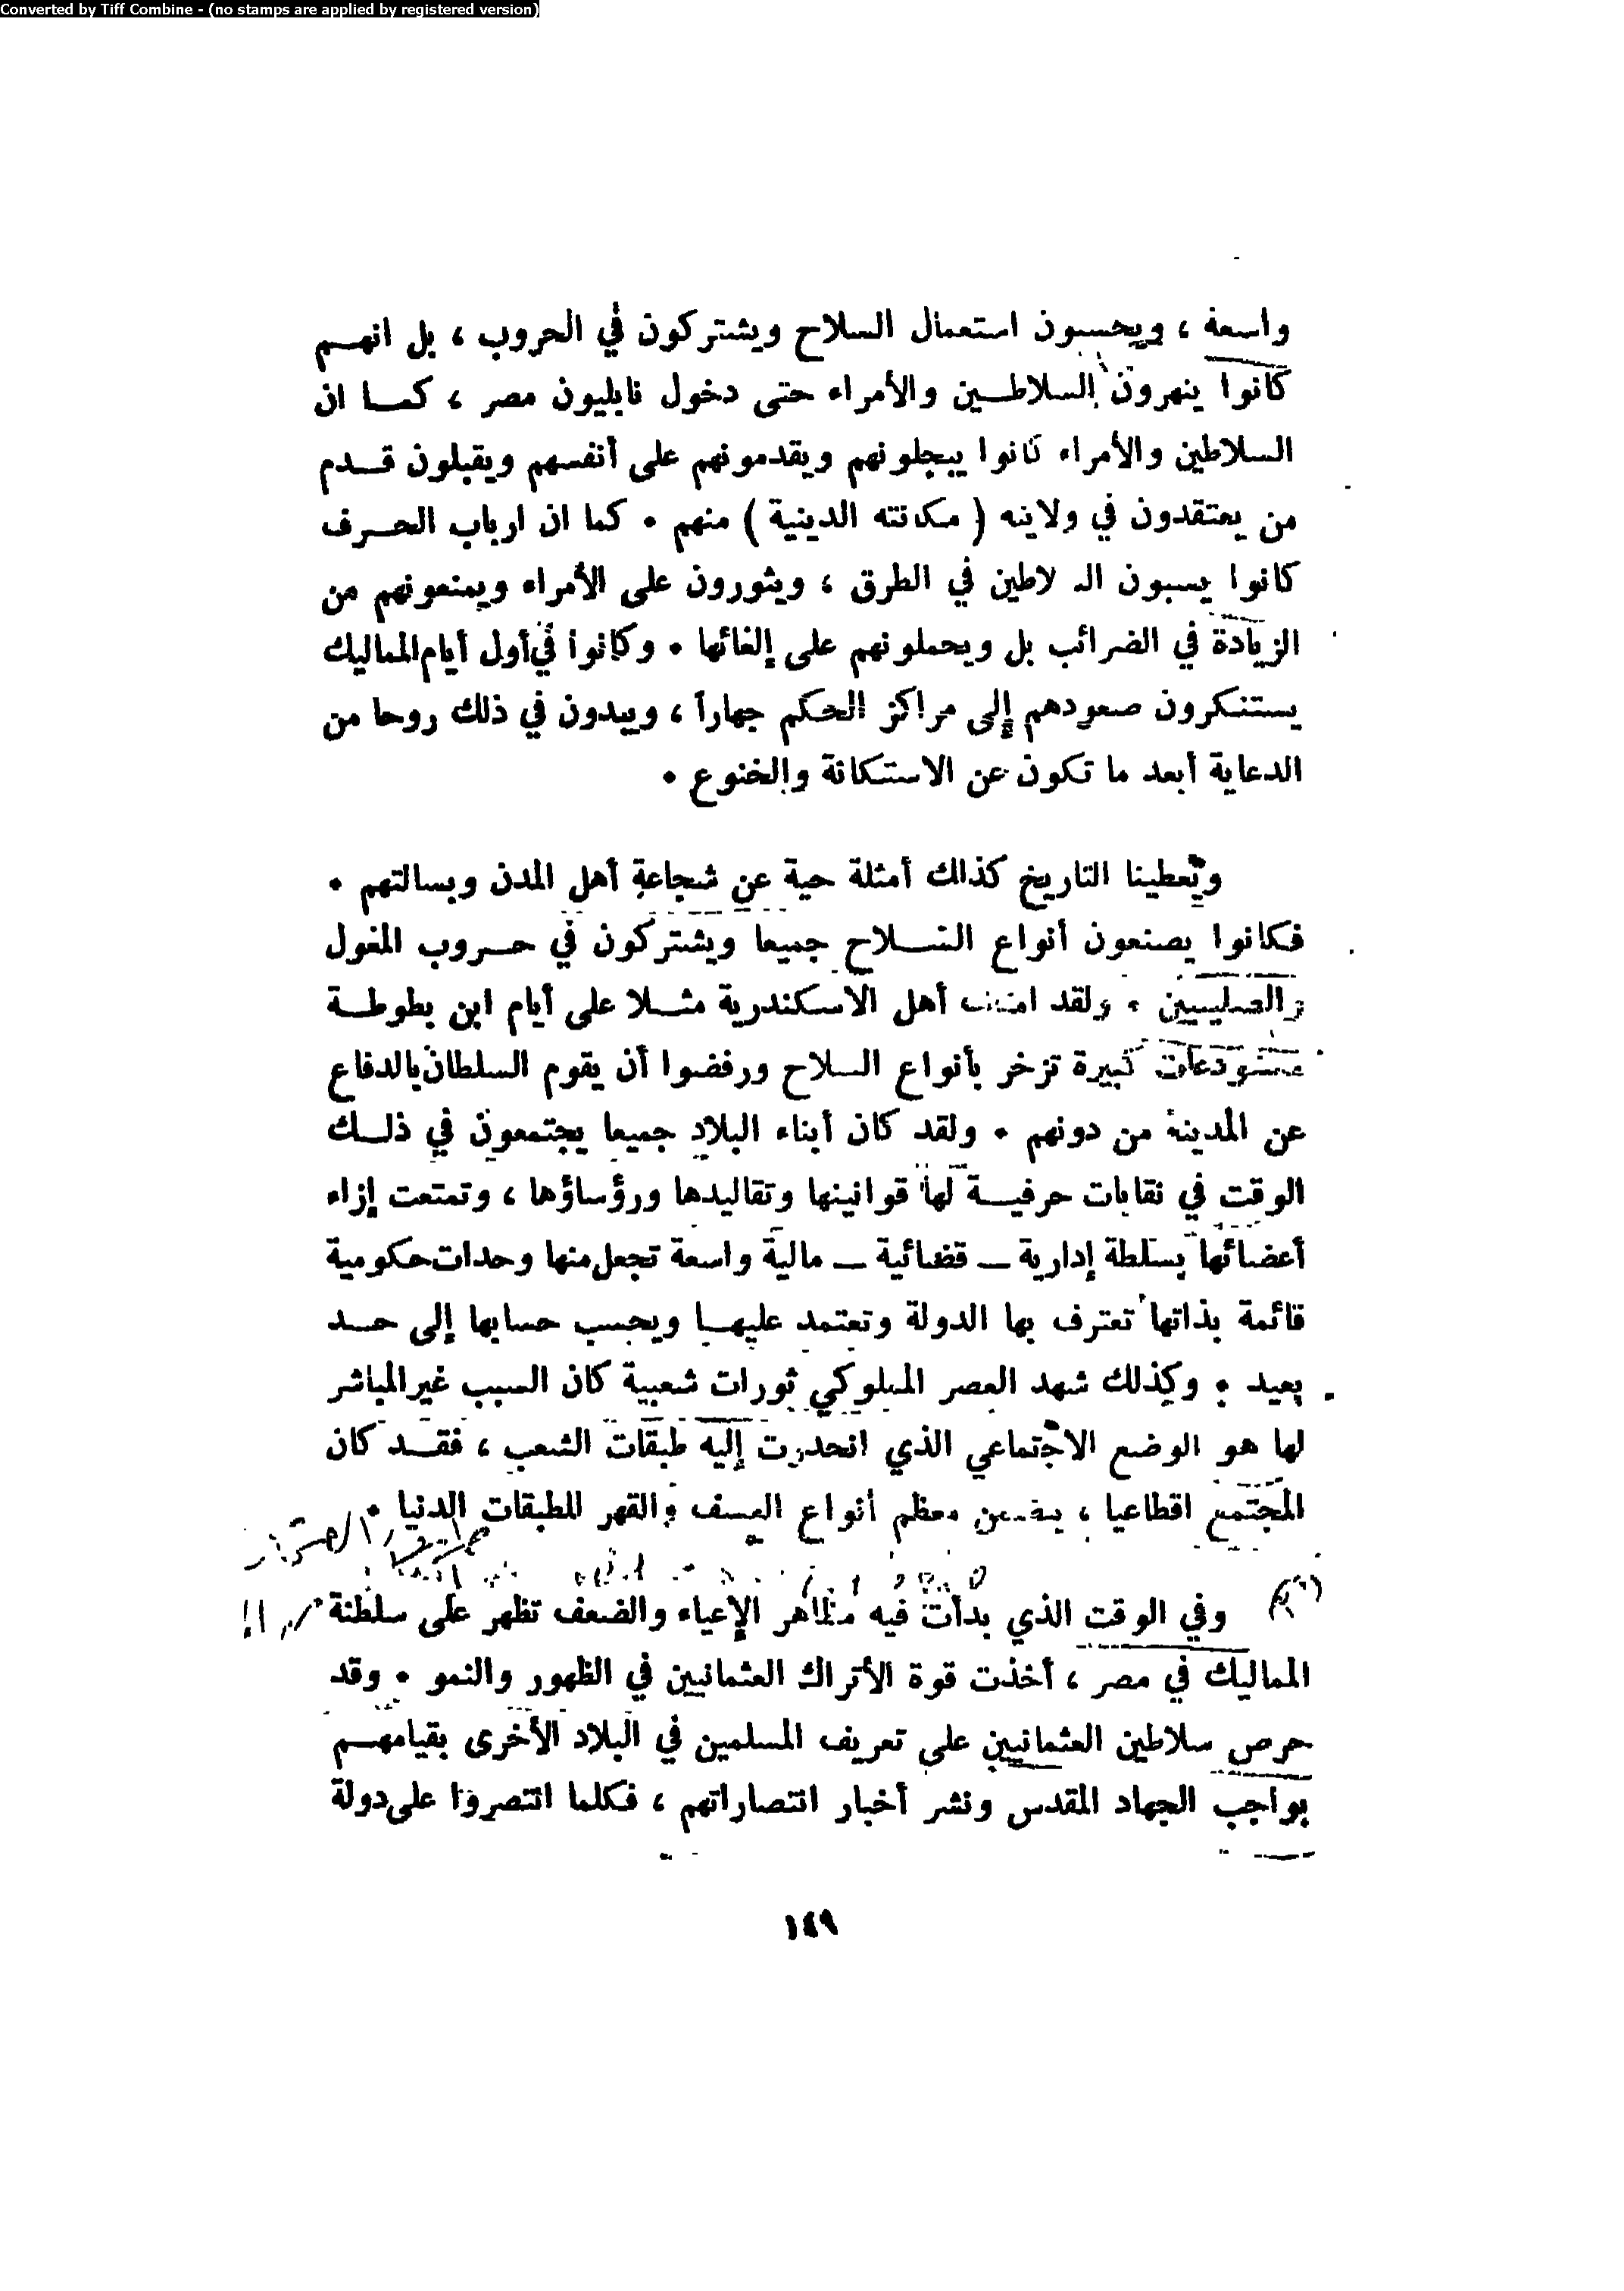 Converted by Tiff Combine - (no stamps are applied by registered version)
واسعة ، ويحسنون استعمال السلاح ويشتركون في الحروب ، بل انهم
كانوا ينهرون السلاطين والأمراء حتى دخول نابليون مصر ، كما ان
السلاطين والأمراء كانوا يبجلونهم ويقدمونهم على أنفسهم ويقبلون قدم
من يعتقدون في ولايته ( مكانته الدينية ) منهم . كما ان ارباب الحرف
كانوا يسبون السلاطين في الطرق ، ويثورون على الأمراء ويمنعونهم من
الزيادة في الضرائب بل ويحملونهم على إلغائها . وكانوا في أول أيام المماليك
يستنكرون صعودهم إلى مراكز الحكم جهاراً ، ويبدون في ذلك روحا من
الدعاية أبعد ما تكون عن الاستكانة والخنوع .
ويعطينا التاريخ كذلك أمثلة حية عن شجاعة أهل المدن وبسالتهم .
فكانوا يصنعون أنواع السلاح جميعا ويشتركون في حروب المغول
والصليبيين . ولقد أهل الاسكندرية مثلا على أيام ابن بطوطة
مستودعات كبيرة تزخر بأنواع السلاح ورفضوا أن يقوم السلطان بالدفاع
عن المدينة من دونهم . ولقد كان أبناء البلاد جميعا يجتمعون في ذلك
الوقت في نقابات حرفية لها قوانينها وتقاليدها ورؤساؤها ، وتمتعت إزاء
أعضائها بسلطة إدارية – قضائية – مالية واسعة تجعل منها وحدات حكومية
قائمة بذاتها تعترف بها الدولة وتعتمد عليها ويحسب حسابها إلى حد
بعيد . وكذلك شهد العصر المملوكي ثورات شعبية كان السبب غير المباشر
لها هو الوضع الاجتماعي الذي انحدرت إليه طبقات الشعب ، فقد كان
المجتمع اقطاعيا ، يضمن معظم أنواع العسف والقهر للطبقات الدنيا .
وفي الوقت الذي بدأت فيه مظاهر الإعياء والضعف تظهر على سلطنة
المماليك في مصر ، أخذت قوة الأتراك العثمانيين في الظهور والنمو . وقد
حرص سلاطين العثمانيين على تعريف المسلمين في البلاد الأخرى بقيامهم
بواجب الجهاد المقدس ونشر أخبار انتصاراتهم ، فكلما انتصروا على دولة
١٤٩